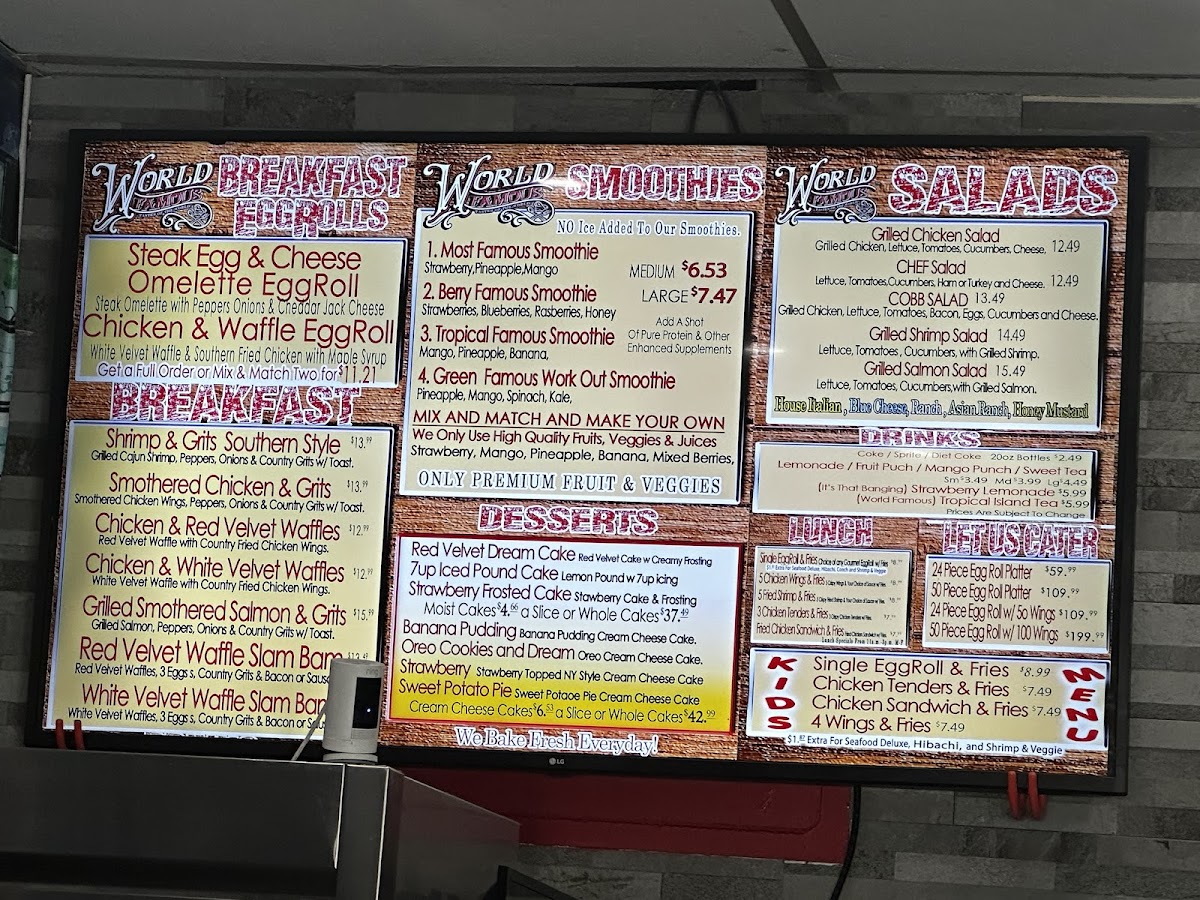 WORLD FAMOUS BREAKFAST
EGGROLLS
Steak Egg & Cheese
Omelette EggRoll
Steak Omelette with Peppers Onions & Cheddar Jack Cheese
Chicken & Waffle EggRoll
White Velvet Waffle & Southern Fried Chicken with Maple Syrup
Get a Full Order or Mix & Match Two for $11.21
BREAKFAST
Shrimp & Grits Southern Style $13.99
Grilled Cajun Shrimp, Peppers, Onions & Country Grits w/ Toast.
Smothered Chicken & Grits $13.99
Smothered Chicken Wings, Peppers, Onions & Country Grits w/ Toast.
Chicken & Red Velvet Waffles $12.99
Red Velvet Waffle with Country Fried Chicken Wings.
Chicken & White Velvet Waffles $12.99
White Velvet Waffle with Country Fried Chicken Wings.
Grilled Smothered Salmon & Grits $15.99
Grilled Salmon, Peppers, Onions & Country Grits w/ Toast.
Red Velvet Waffle Slam Bam
Red Velvet Waffles, 3 Eggs s, Country Grits & Bacon or
White Velvet Waffle Slam
White Velvet Waffles, 3 Eggs s, Country Grits & Bacon or
WORLD FAMOUS SMOOTHIES
NO Ice Added To Our Smoothies.
1. Most Famous Smoothie
Strawberry,Pineapple,Mango
MEDIUM $6.53
2. Berry Famous Smoothie
LARGE $7.47
Strawberries, Blueberries, Rasberries, Honey
3. Tropical Famous Smoothie
Mango, Pineapple, Banana,
Add A Shot
Of Pure Protein & Other
Enhanced Supplements
4. Green Famous Work Out Smoothie
Pineapple, Mango, Spinach, Kale,
MIX AND MATCH AND MAKE YOUR OWN
We Only Use High Quality Fruits, Veggies & Juices
Strawberry, Mango, Pineapple, Banana, Mixed Berries,
ONLY PREMIUM FRUIT & VEGGIES
DESSERTS
Red Velvet Dream Cake Red Velvet Cake w Creamy Frosting
7up Iced Pound Cake Lemon Pound w 7up icing
Strawberry Frosted Cake Stawberry Cake & Frosting
Moist Cakes $4.66 a Slice or Whole Cakes $37.49
Banana Pudding Banana Pudding Cream Cheese Cake.
Oreo Cookies and Dream Oreo Cream Cheese Cake.
Strawberry Stawberry Topped NY Style Cream Cheese Cake
Sweet Potato Pie Sweet Potaoe Pie Cream Cheese Cake
Cream Cheese Cakes $6.53 a Slice or Whole Cakes $42.99
We Bake Fresh Everyday!
WORLD FAMOUS SALADS
Grilled Chicken Salad
Grilled Chicken, Lettuce, Tomatoes, Cucumbers, Cheese. 12.49
CHEF Salad
Lettuce, Tomatoes,Cucumbers, Ham or Turkey and Cheese. 12.49
COBB SALAD 13.49
Grilled Chicken, Lettuce, Tomatoes, Bacon, Eggs, Cucumbers and Cheese.
Grilled Shrimp Salad 14.49
Lettuce, Tomatoes, Cucumbers, with Grilled Shrimp.
Grilled Salmon Salad 15.49
Lettuce, Tomatoes, Cucumbers,with Grilled Salmon.
House Italian, Blue Cheese, Ranch, Asian Ranch, Honey Mustard
DRINKS
Coke / Sprite / Diet Coke 20oz Bottles $2.49
Lemonade / Fruit Puch / Mango Punch / Sweet Tea
Sm $3.49 Md $3.99 Lg $4.49
(It's That Banging) Strawberry Lemonade $5.99
(World Famous) Tropical Island Tea $5.99
Prices Are Subject To Change
LUNCH
Single EggRoll & Fries Choice of any Gourmet EggRoll w/ Fries
Extra For Seafood Deluxe, Hibachi, Conch and Shrimp & Veggie
5 Chicken Wings & Fries
5 Fried Shrimp & Fries
3 Chicken Tenders & Fries
Fried Chicken Sandwich & Fries
Lunch Specials From
LET US CATER
24 Piece Egg Roll Platter $59.99
50 Piece Egg Roll Platter $109.99
24 Piece Egg Roll w/ 50 Wings $109.99
50 Piece Egg Roll w/ 100 Wings $199.99
KIDS MENU
Single EggRoll & Fries $8.99
Chicken Tenders & Fries $7.49
Chicken Sandwich & Fries $7.49
4 Wings & Fries $7.49
$1.87 Extra For Seafood Deluxe, Hibachi, and Shrimp & Veggie
LG